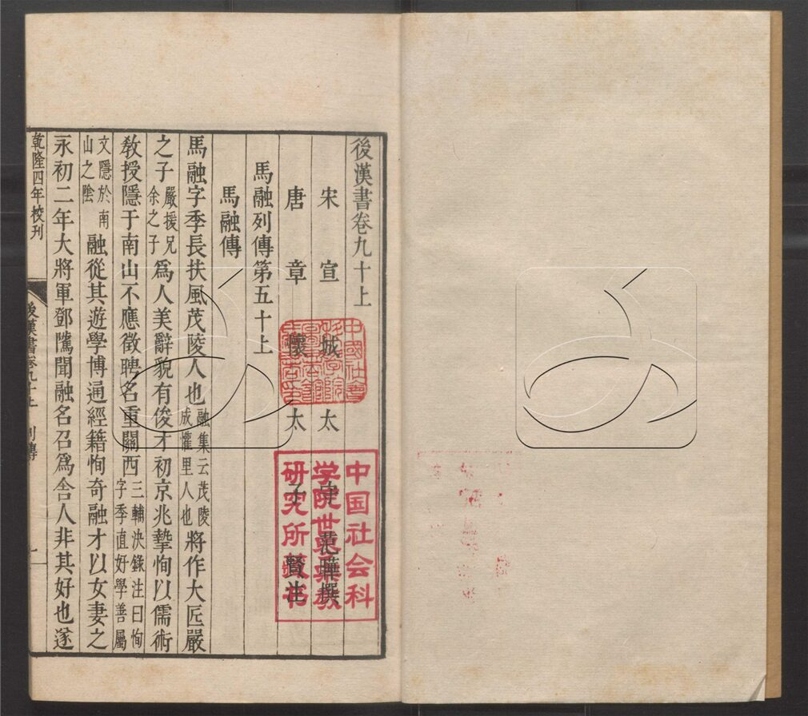 後漢書卷九十上
宋宣城太守范曄撰
唐章懷太子賢注
馬融列傳第五十上
馬融傳
馬融字季長扶風茂陵人也融集云茂陵成懽里人也將作大匠嚴
之子嚴援兄余之子為人美辭貌有俊才初京兆摯恂以儒術
教授隱于南山不應徵聘名重關西三輔決錄注曰恂字季直好學善屬
文隱於南山之陰融從其遊學博通經籍恂奇融才以女妻之
永初二年大將軍鄧隲聞融名召為舍人非其好也遂
乾隆四年校刊
後漢書卷九十上
列傳
一
中国社会科
学院世界宗教
研究所藏书